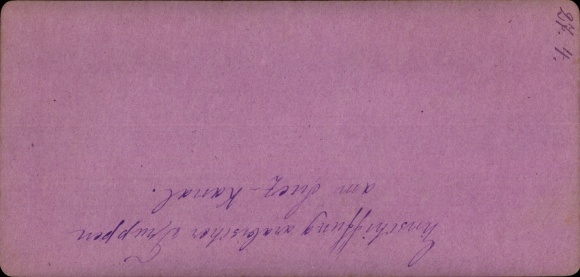 Einschiffung arabischer Truppen
am Suez-Kanal.
27. 4.